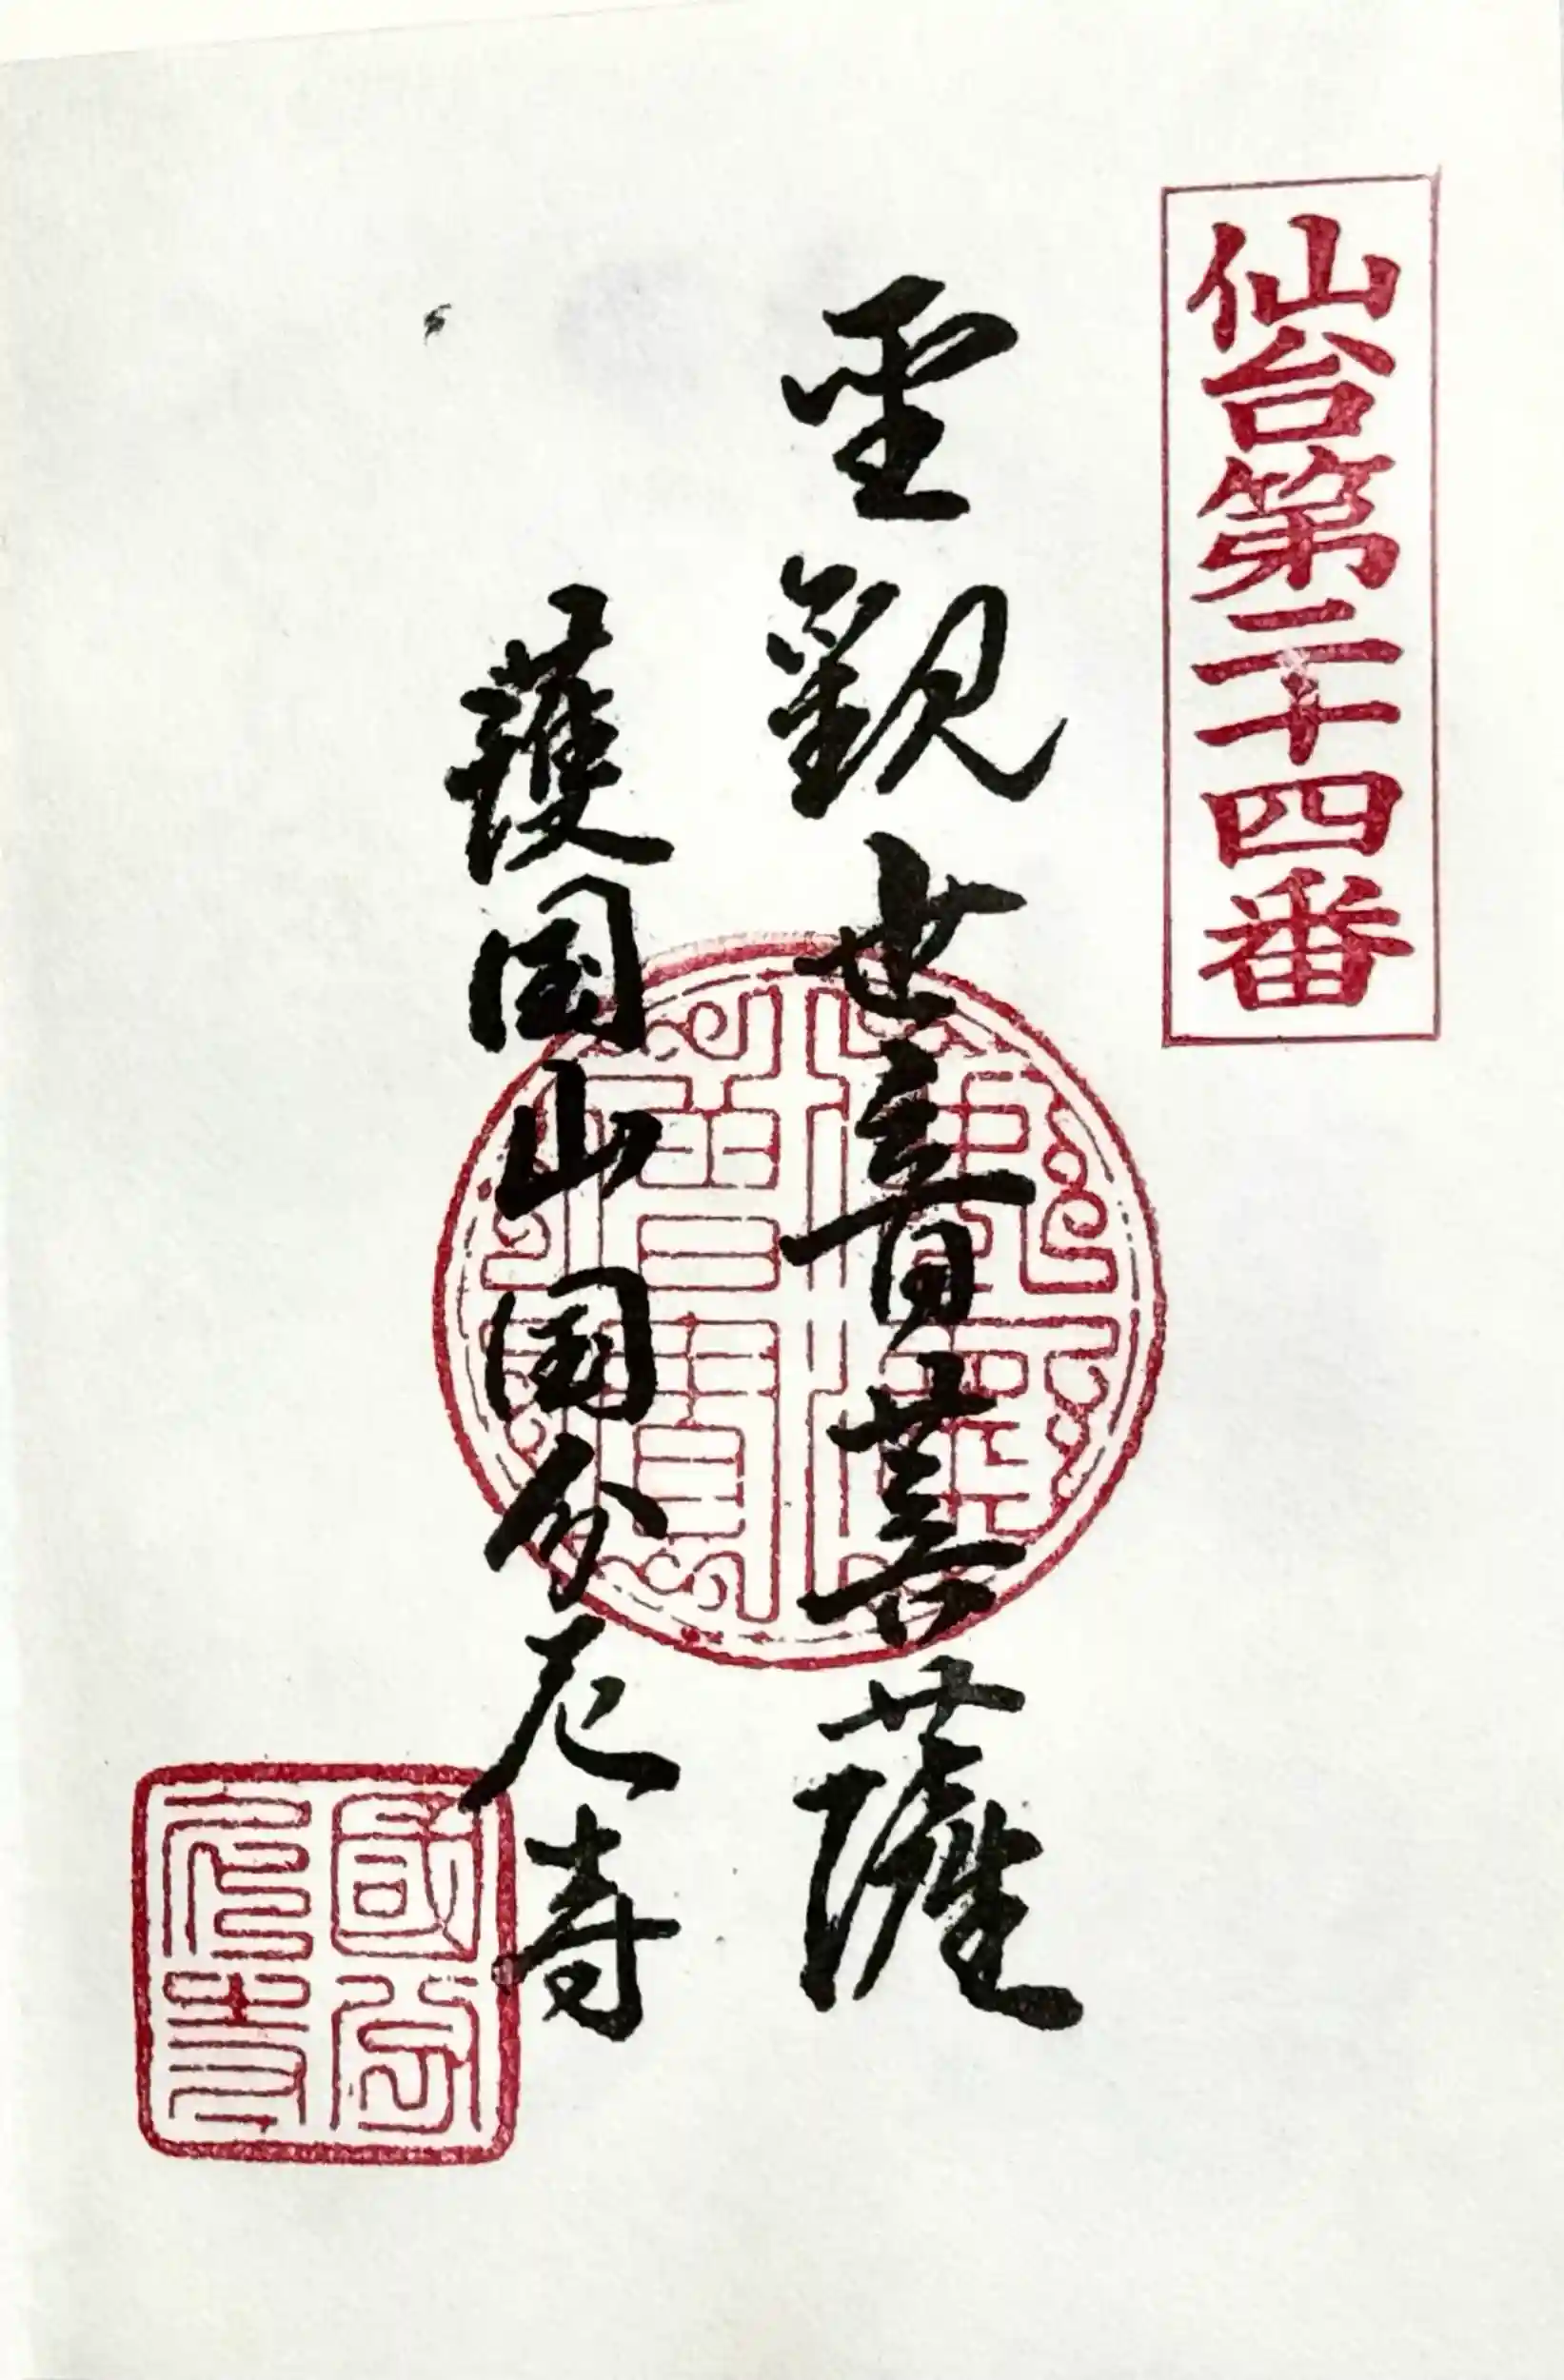 仙台第二十四番
聖観世音菩薩
護国山国分尼寺
國分
尼寺